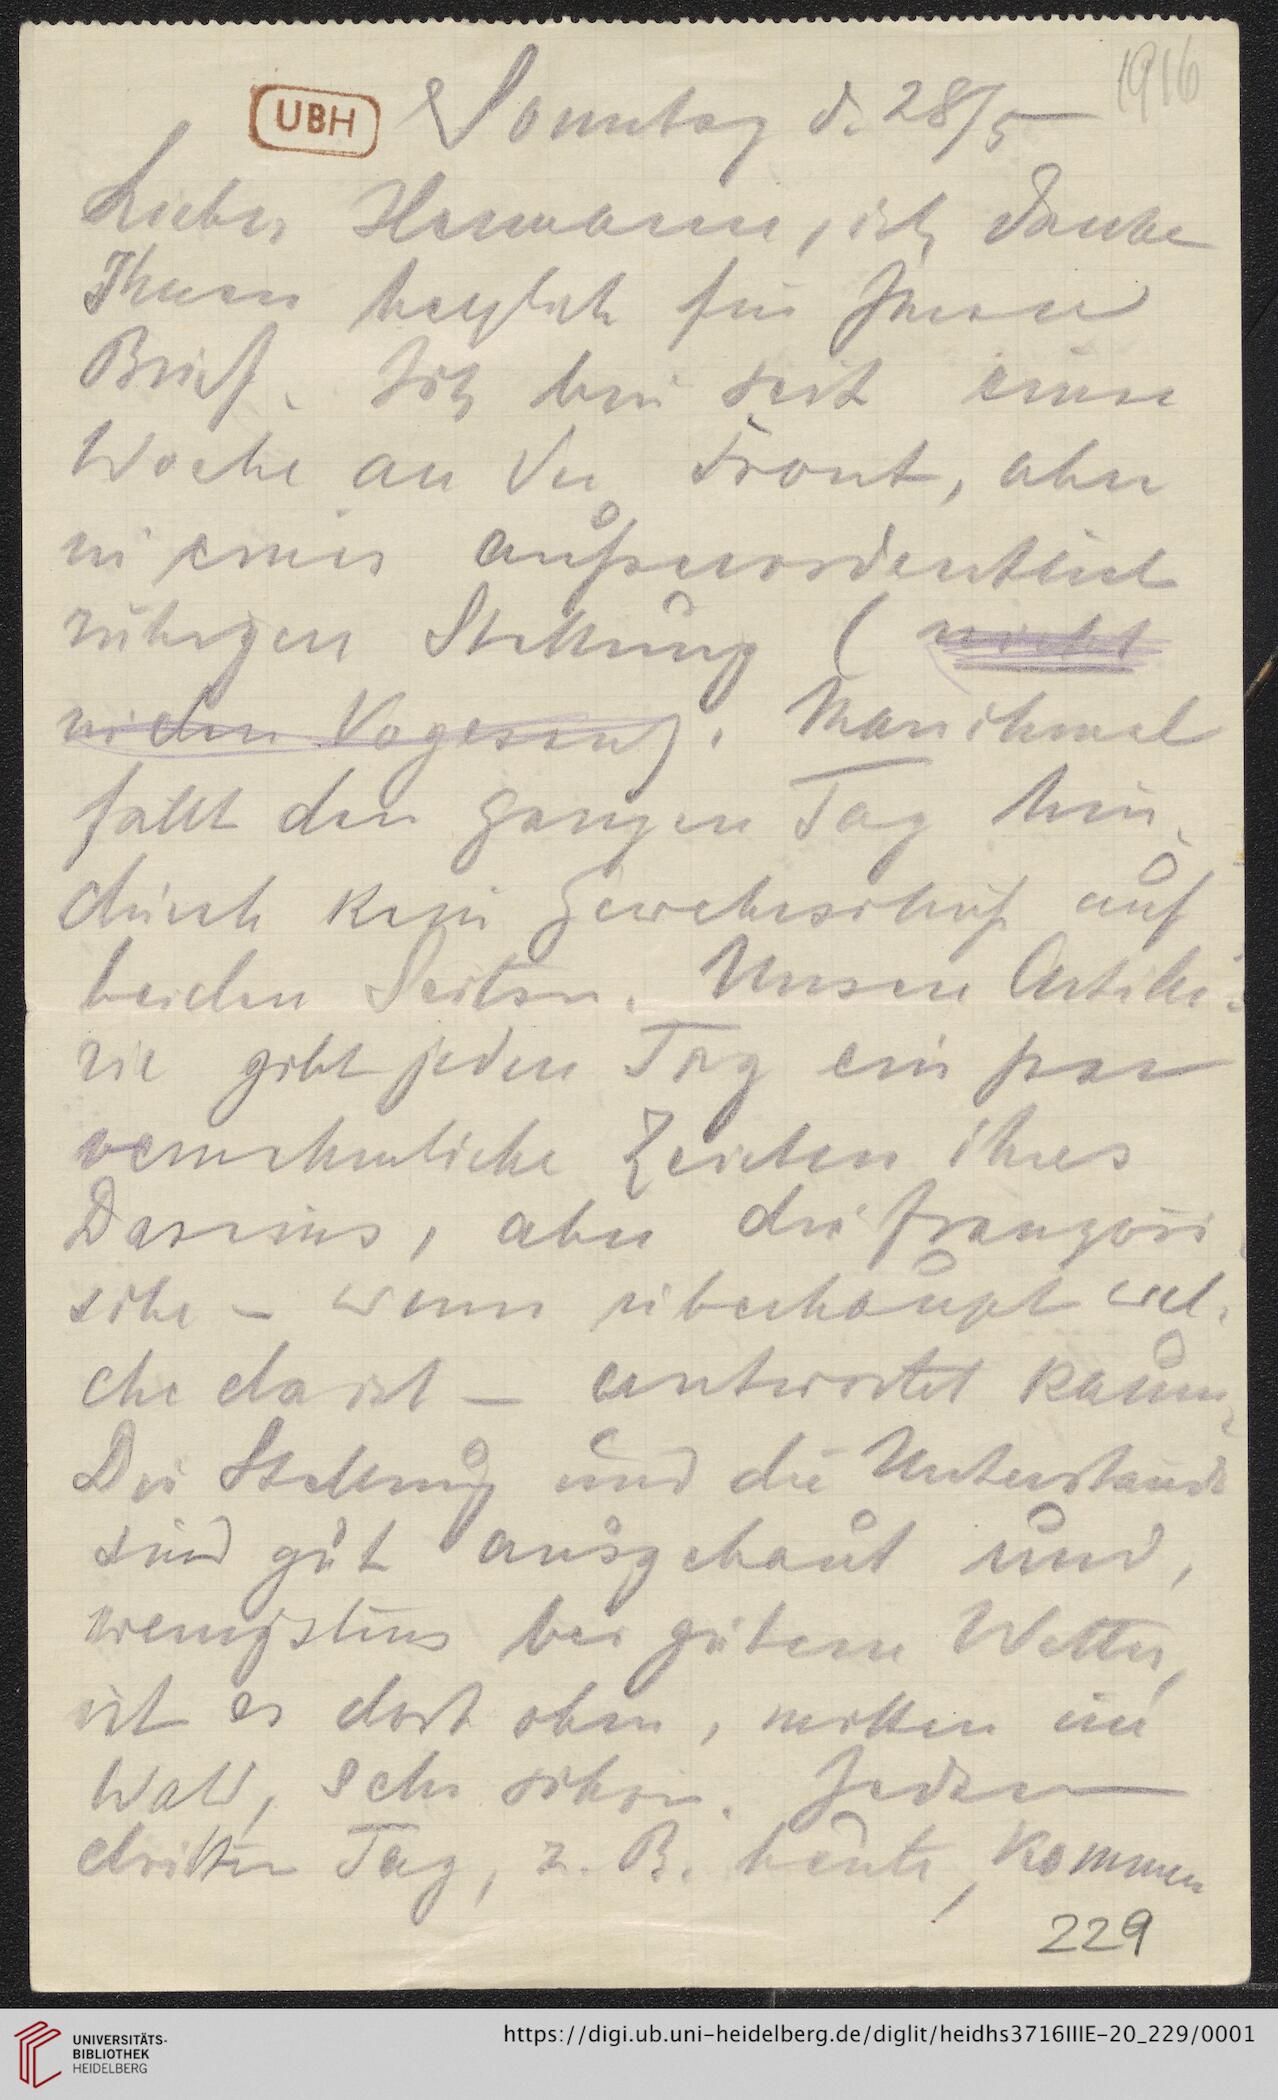 1916
UBH
Sonntag d. 28/5
Lieber Hermann, ich danke
Ihnen herzlich für Ihren
Brief. Ich bin seit einer
Woche an der Front, aber
in einer außerordentlich
ruhigen Stellung (nicht
in den Vogesen). Manchmal
fällt den ganzen Tag hin-
durch kein Gewehrschuß auf
beiden Seiten. Unsere Artille-
rie gibt jeden Tag ein paar
vernehmliche Zeichen ihres
Daseins, aber die französi-
sche – wenn überhaupt wel-
che da ist – antwortet kaum.
Die Stellung und die Unterstände
sind gut ausgebaut und,
wenigstens bei gutem Wetter,
ist es dort oben, mitten im
Wald, sehr schön. Jeden
dritten Tag, z. B. heute, kommen
229
UNIVERSITÄTS-
BIBLIOTHEK
HEIDELBERG
https://digi.ub.uni-heidelberg.de/diglit/heidhs3716IIIE-20_229/0001